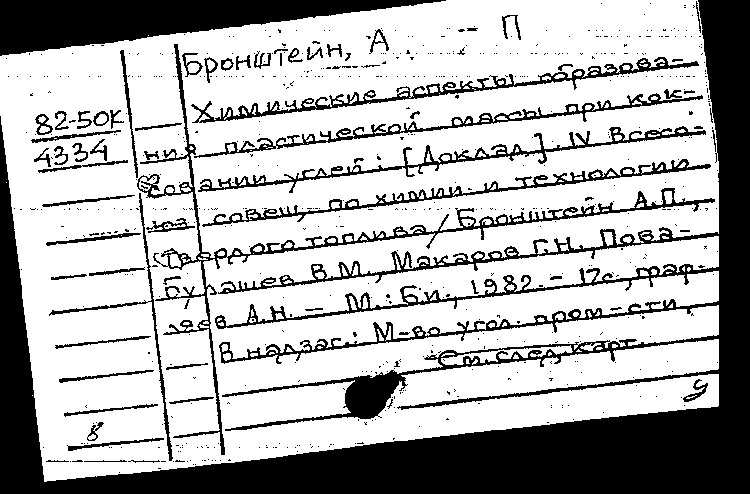 Бронштейн, А. П
82-50К
4334
Химические аспекты образова-
ния пластической массы при кок-
совании углей: [Доклад]. IV Всесо-
юз совещ. по химии и технологии
твердого топлива / Бронштейн А.П.,
Булашев В.М., Макаров Г.Н., Пова-
ляев А.Н. – М.: Б.и., 1982. – 17с., граф.
В надзаг.: М-во угол. пром-сти.
См. след. карт.
8